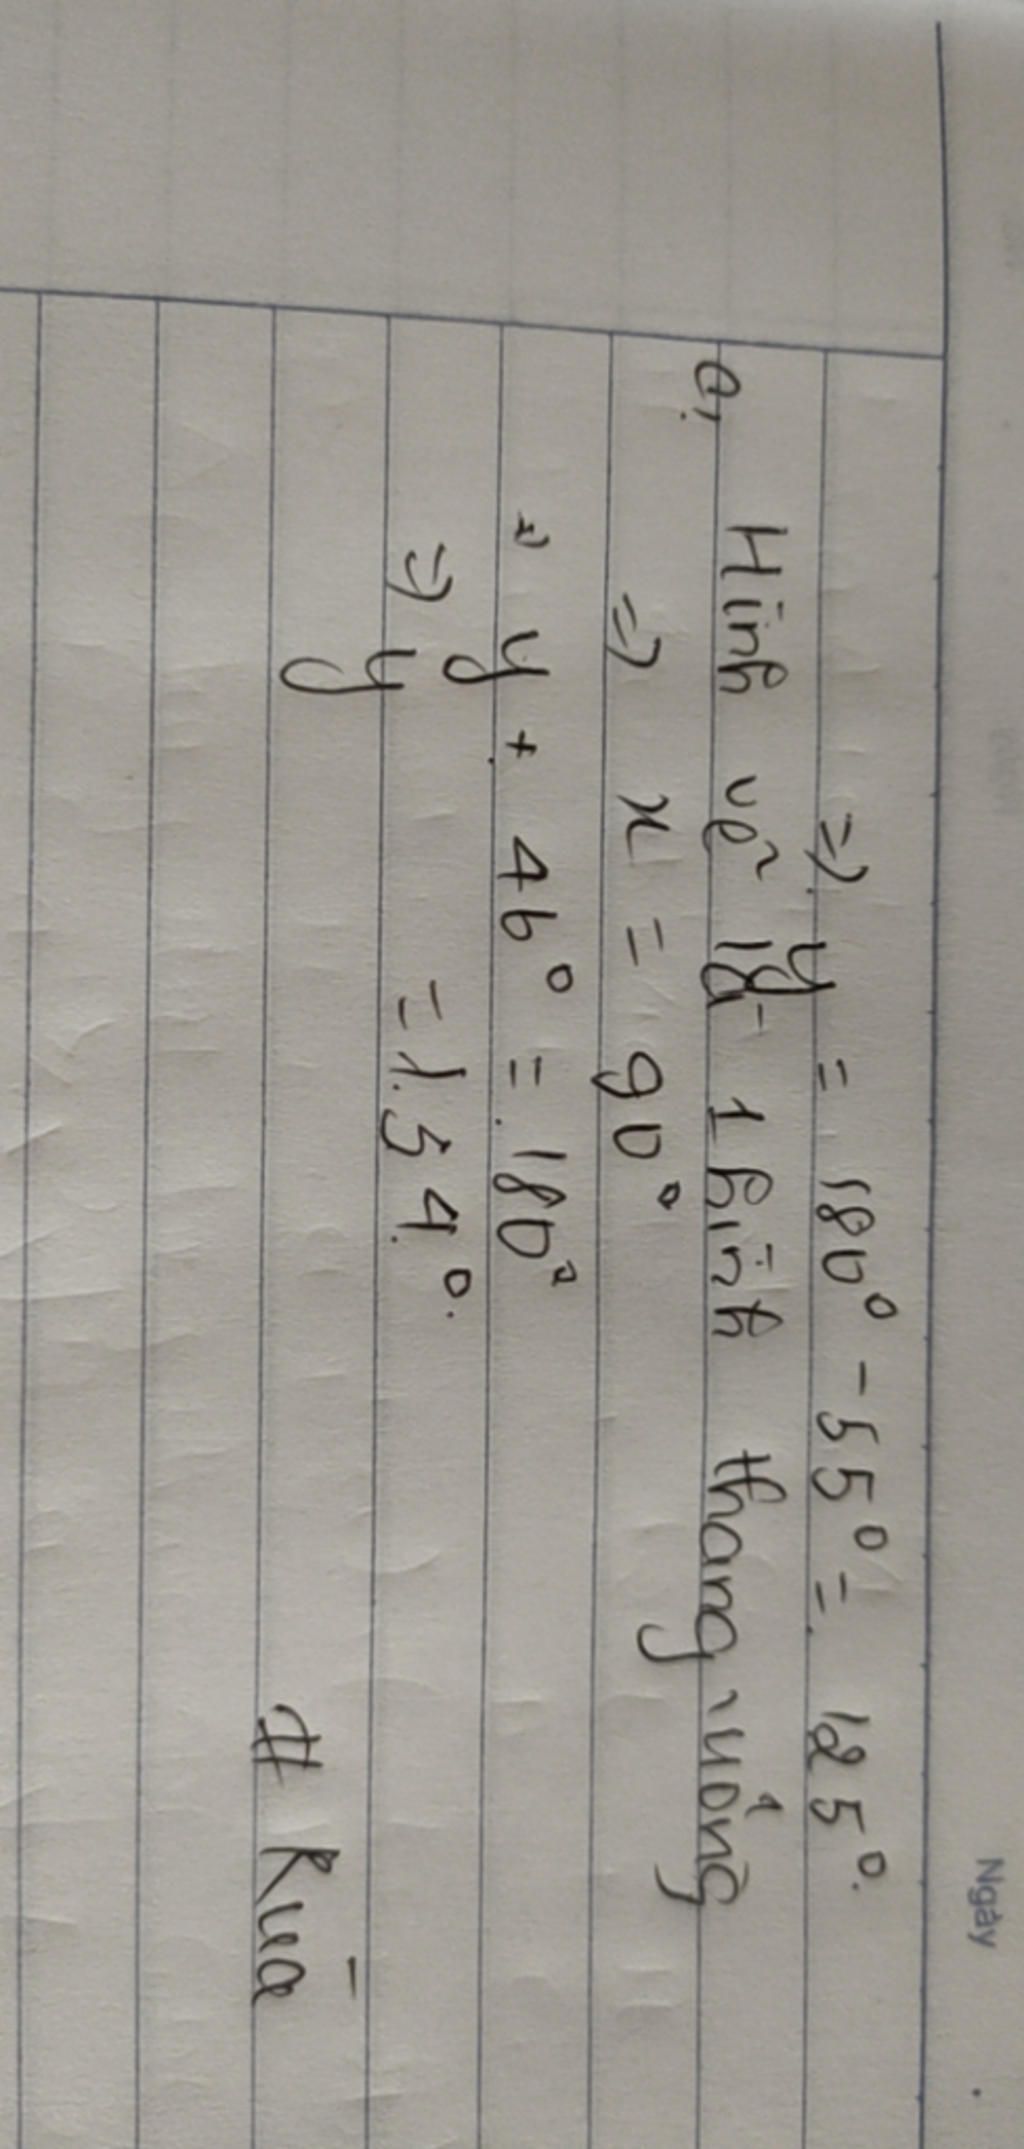 Ngày
=> y = 180° - 55° = 125°.
a, Hình vẽ là 1 hình thang vuông
=> x = 90°
=> y + 46° = 180°
=> y = 134°.
# Rùa